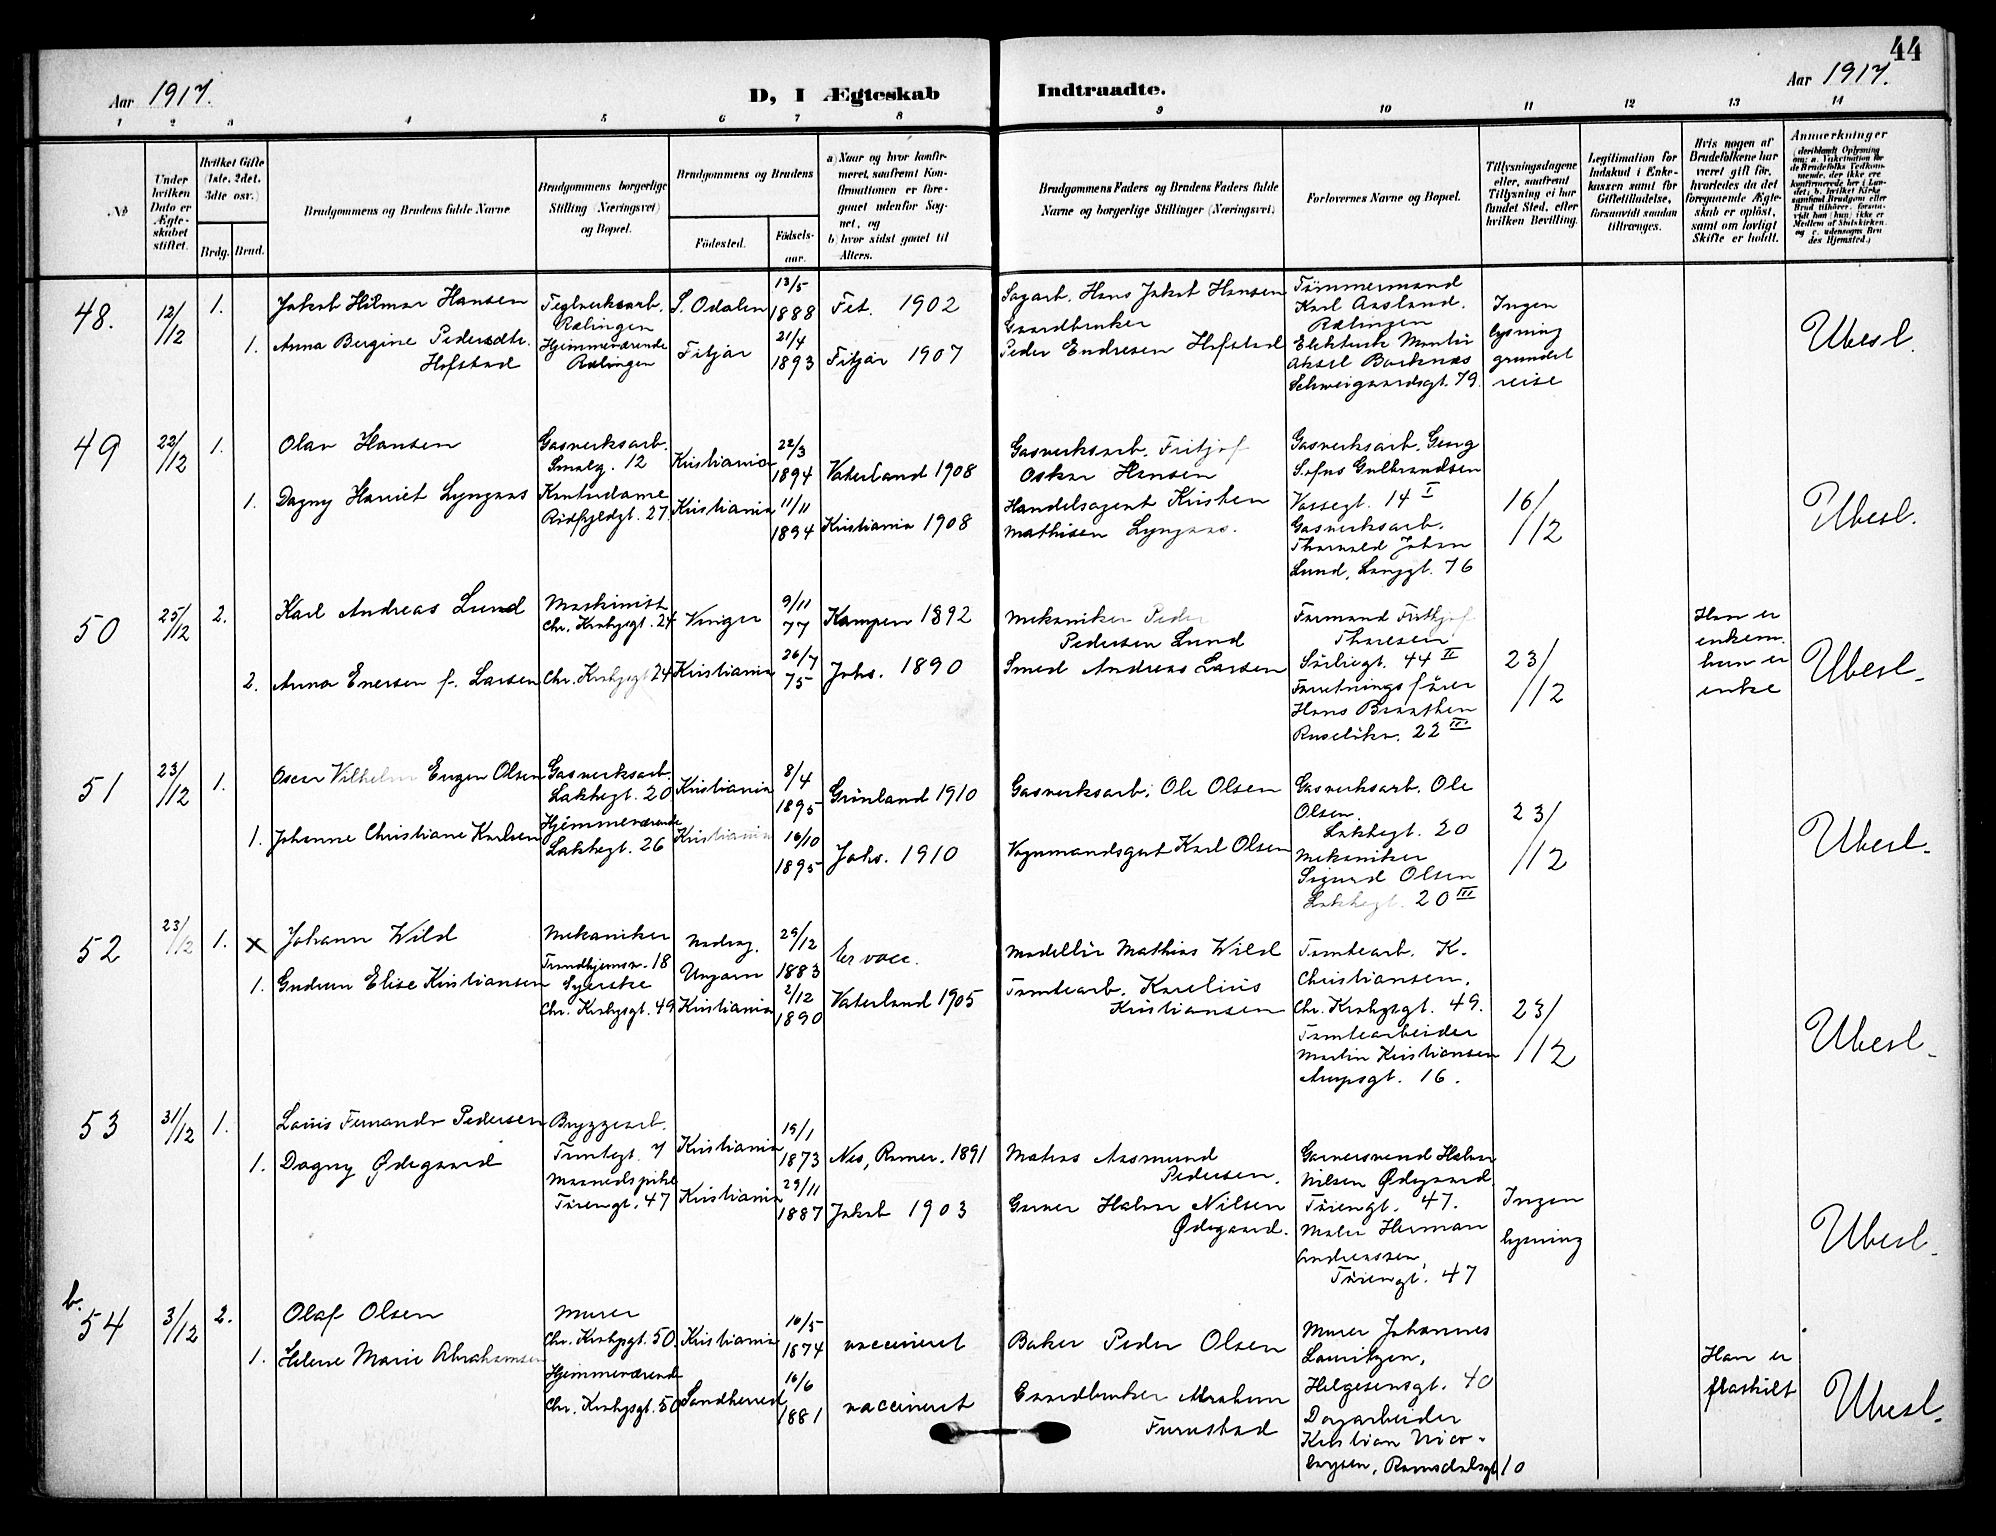 44
Aar 1917.
D, I Ægteskab
Indtraadte.
Aar 1917.
1 2 3 4 5 6 7 8 9 10 11 12 13 14
No
Under hvilken Dato er Ægteskabet stiftet.
Hvilket Gifte (1ste, 2det, 3dte osv.)
Brdg. Brud.
Brudgommens og Brudens fulde Navne
Brudgommens borgerlige Stilling (Næringsvei) og Bopæl.
Brudgommens og Brudens
Födested.
Födselsaar.
a) Naar og hvor konfirmeret, saafremt Konfirmationen er foregaaet udenfor Sognet, og
b) hvor sidst gaaet til Alters.
Brudgommens Faders og Brudens Faders fulde Navne og borgerlige Stillinger (Næringsvei)
Forlovernes Navne og Bopæl.
Tillysningsdagene eller, saafremt Tillysning ei har fundet Sted, efter hvilken Bevilling.
Legitimation for Indskud i Enkekassen samt for Giftetilladelse, forsaavidt saadan tiltrænges.
Hvis nogen af Brudefolkene har været gift før, hvorledes da det foregaaende Ægteskab er opløst, samt om lovligt Skifte er holdt.
Anmærkninger
48. 12/12 1. Jakob Hilmar Hansen
Teglverksarb.
Rælingen
S. Odalen
13/5 1888
Fet. 1902
Sagarb. Hans Jakob Hansen
Tømmermand
Karl Aasland.
Rælingen
1. Anna Bergine Pedersdtr.
Hofstad
Hjemmeværende
Rælingen
Fitjar
21/4 1893
Fitjar 1907
Gaardbruker
Peder Endresen Hofstad
Elektrisk Montør
Aksel
Schweigaardsgt. 79.
Ingen
lysning
grundet
reise
Ubesl.
49 22/12 1. Olav Hansen
Gasverksarb.
Smalg. 12
Kristiania
22/3 1894
Vaterland 1908
Gasverksarb. Fritjof
Oskar Hansen
Gasverksarb. Georg
Sofus Gulbrandsen
Vossegt. 14 I
1. Dagny Harriet Lyngaas
Kontordame
Ridfyldgt. 27.
Kristiania
11/11 1894
Kristiania 1908
Handelsagent Kristen
Mathisen Lyngaas.
Gasverksarb.
Thorvald Johan
Lund, Langgt. 76
16/12
Ubesl.
50 25/12 2. Karl Andreas Lund
Maskinist
Chr. Krohgsgt. 24
Vinger
9/11 77
Kampen 1892
Mekaniker Peder
Pedersen Lund
Formand Frithjof
Thoresen
Sörligt. 44 II
2. Anna Enersen f. Larsen
Chr. Krohgsgt 24
Kristiania
26/7 75
Johs. 1890
Smed Andreas Larsen
Forretningsfører
Hans Braathen
Ruselökv. 22 III
23/12
Han er
enkem.
hun er
enke
Ubesl.
51 23/12 1. Oscar Vilhelm Eugen Olsen
Gasverksarb.
Lakkegt. 20
Kristiania
8/4 1895
Grönland 1910
Gasverksarb. Ole Olsen
Gasverksarb. Ole
Olsen.
Lakkegt. 20
1. Johanne Christiane Karlsen
Hjemmeværende
Lakkegt. 26
Kristiania
10/10 1895
Johs. 1910
Vognmandsgut Karl Olsen
Mekaniker
Sigurd Olsen
Lakkegt. 20 III
23/12
Ubesl.
52 23/12 1. x Johann Wild
Mekaniker
Trondhjemsv. 18
Ungarn
29/12 1883
Er vacc.
Modellör Mathias Wild
Tomtearb. K.
Christiansen.
Chr. Krohgsgt. 49.
1. Gudrun Elise Kristiansen
Syerske
Chr. Krohgsgt. 49
Kristiania
2/12 1890
Vaterland 1905
Tomtearb. Karelius
Kristiansen
Tomtearbeider
Martin Kristiansen
Aurpsgt. 16.
23/12
Ubesl.
53 31/12 1. Louis Fernando Pedersen
Bryggearb.
Tomtegt. 7
Kristiania
19/1 1873
Nes, Romer. 1891
Matros Aasmund
Pedersen.
Garversvend Halvor
Nilsen Ødegaard
Töiengt. 47.
1. Dagny Ødegaard
Töiengt. 47
Kristiania
29/11 1887
Jakob 1903
Garver Halvor Nilsen
Ødegaard.
Maler Herman
Andreassen,
Töiengt. 47
Ingen
lysning
Ubesl.
b.
54 3/12 2. Olaf Olsen
Murer
Chr. Krohgsgt. 50.
Kristiania
10/5 1874
vaccineret
Baker Peder Olsen
Murer Johannes
Lauritzen,
Helgesensgt. 40
1. Helene Marie Abrahamsen
Hjemmeværende
Chr. Krohgsgt. 50
Sandherred
10/6 1881
vaccineret
Gaardbruker Abraham
Furustad
Dagarbeider
Kristian Nico-
laysen, Romsdalsgt 10
Han er
fraskilt
Ubesl.